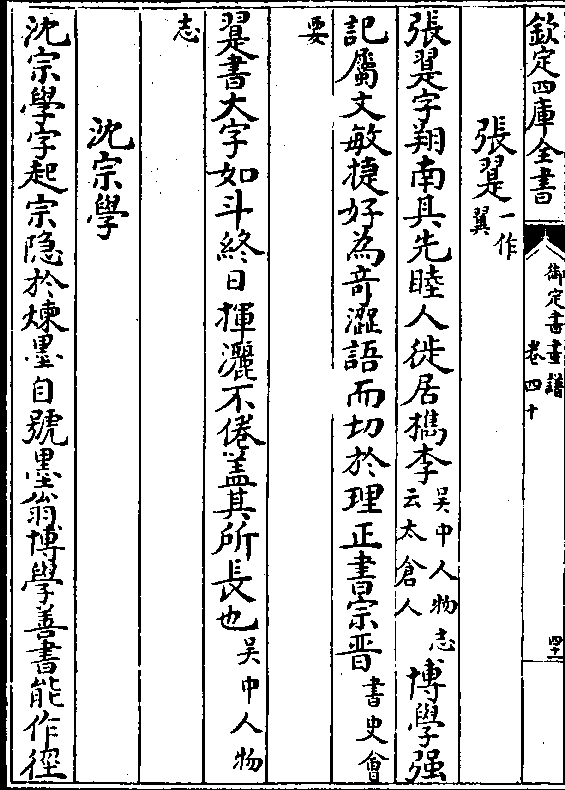 欽定四庫全書
御定書畫譜
卷四十
四十一
張翨一作翼
張翨字翔南其先睦人徙居檇李吳中人物志云太倉人博學强
記屬文敏捷好為奇澀語而切於理正書宗晋書史會
要
翨書大字如斗終日揮灑不倦蓋其所長也吳中人物
志
沈宗學
沈宗學字起宗隐於煉墨自號墨翁博學善書能作徑